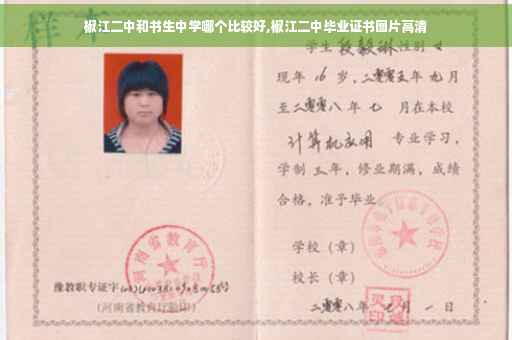 椒江二中和书生中学哪个比较好,椒江二中毕业证书图片高清
样本
学生 段毅琳 性别 女
现年 16 岁,二零零五年 九月
至二零零八年 七 月在本校
计算机应用 专业学习,
学制 三 年,修业期满,成绩
合格,准予毕业
学校(章)
校长(章)
豫教职专证字
(河南省教育厅验印)
二零零八年 七 月 一 日
河南省教育厅